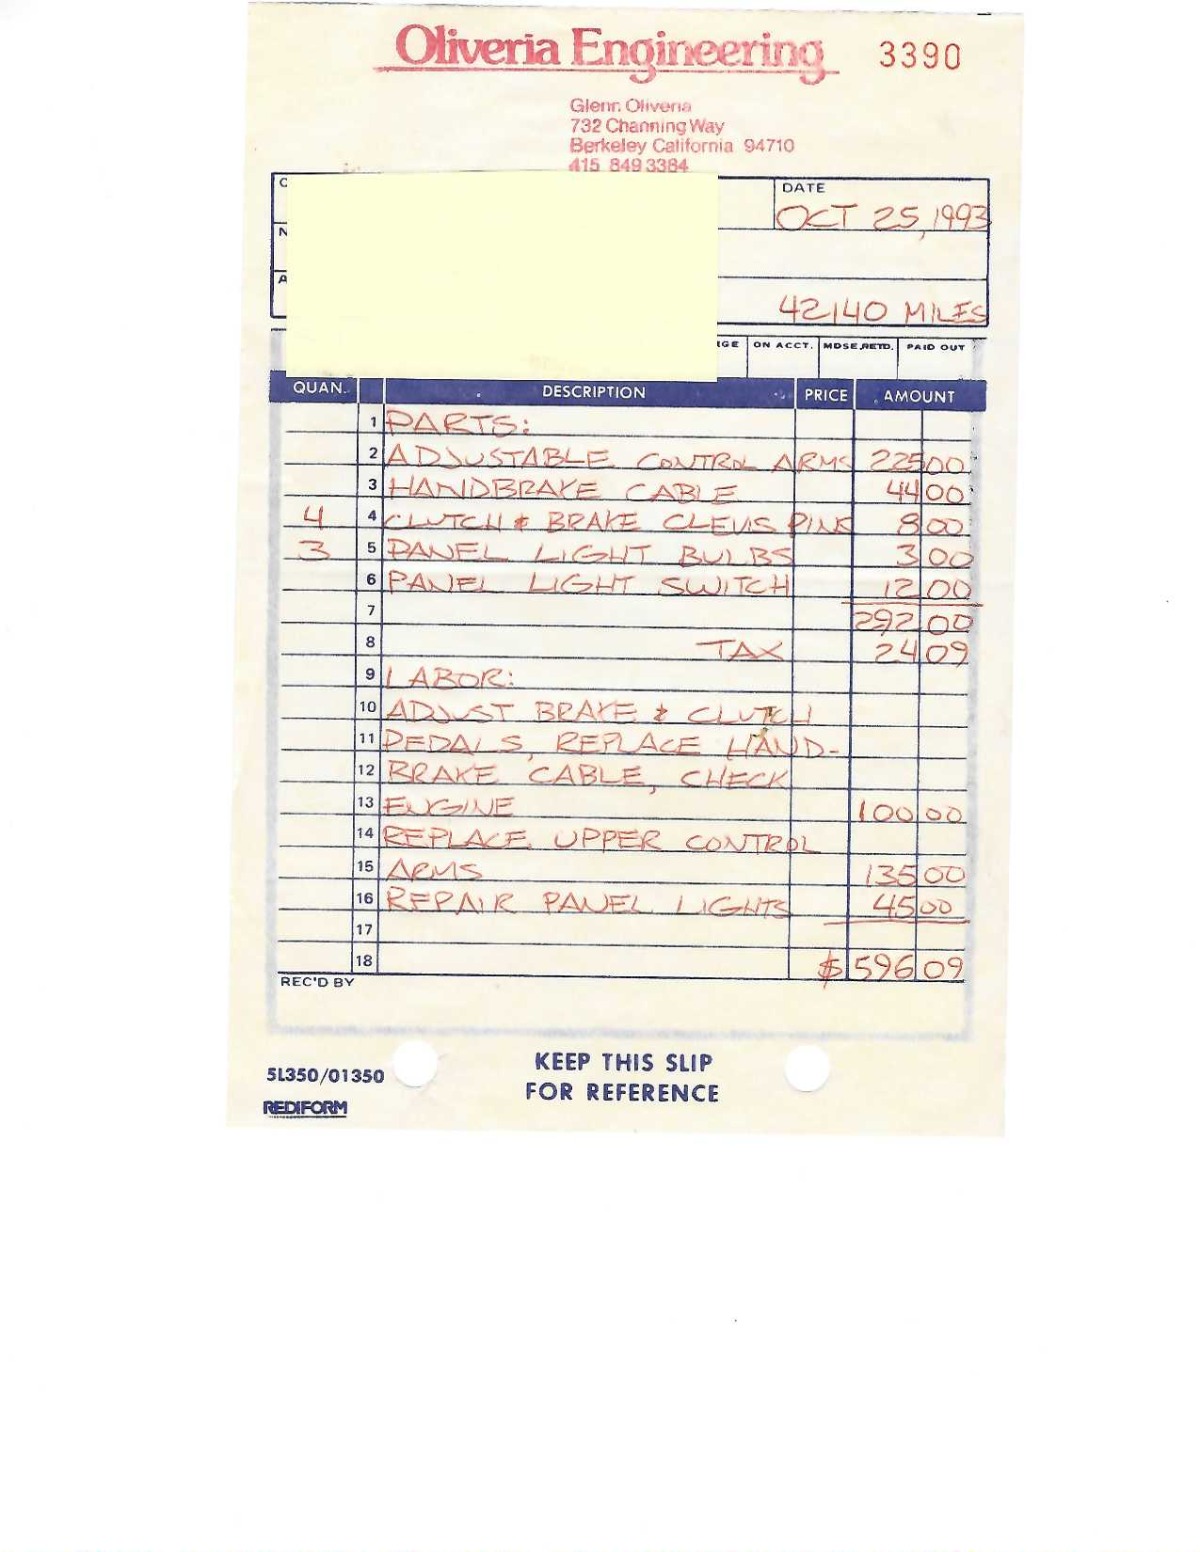 Oliveria Engineering 3390
Glenn Oliveria
732 Channing Way
Berkeley California 94710
415 849 3384
DATE
OCT 25, 1993
42,140 MILES
ON ACCT. MDSE, RETD. PAID OUT
QUAN. DESCRIPTION PRICE AMOUNT
1 PARTS:
2 ADJUSTABLE CONTROL ARMS 225 00
3 HANDBRAKE CABLE 44 00
4 4 CLUTCH & BRAKE CLEVIS PINS 8 00
3 5 PANEL LIGHT BULBS 3 00
6 PANEL LIGHT SWITCH 12 00
7 292 00
8 TAX 24 09
9 LABOR:
10 ADJUST BRAKE & CLUTCH
11 PEDALS, REPLACE HAND-
12 BRAKE CABLE, CHECK
13 ENGINE 100 00
14 REPLACE UPPER CONTROL
15 ARMS 135 00
16 REPAIR PANEL LIGHTS 45 00
17
18 $ 596 09
REC'D BY
KEEP THIS SLIP
FOR REFERENCE
5L350/01350
REDIFORM